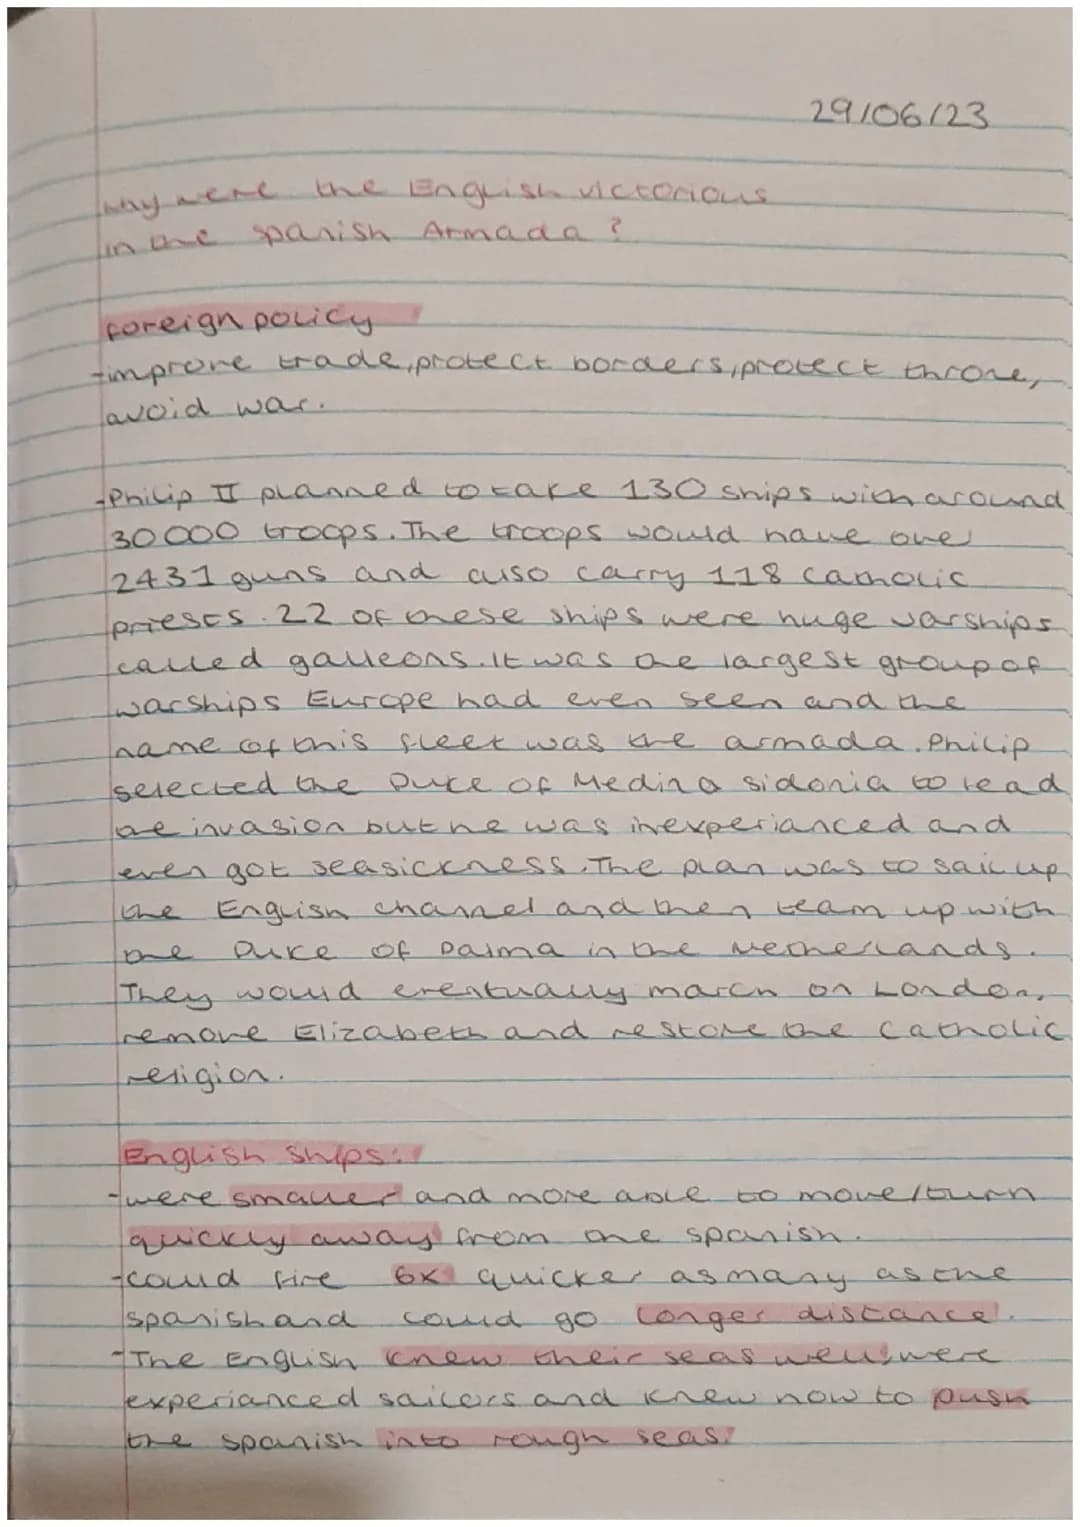 29/06/23
why were the English victorious
in the spanish Armada?
foreign policy
-improve trade, protect borders, protect throne,
avoid war.
-Philip II planned to take 130 ships with around
30000 troops. The troops would have over
2431 guns and also carry 118 catholic
priests. 22 of these ships were huge warships
called galleons. It was the largest group of
warships Europe had ever seen and the
name of this fleet was the armada. Philip
selected the Duke of Medina sidonia to lead
the invasion but he was inexperianced and
even got seasickness. The plan was to sail up
the English channel and then team up with
the Duke of Palma in the Netherlands.
They would eventually march on London,
remove Elizabeth and restore the catholic
religion.
English ships:
-were smaller and more able to move/turn
quickly away from the spanish.
-could fire 6x quicker as many as the
spanish and could go longer distance.
-The English knew their seas well, were
experianced sailors and knew how to push
the spanish into rough seas.